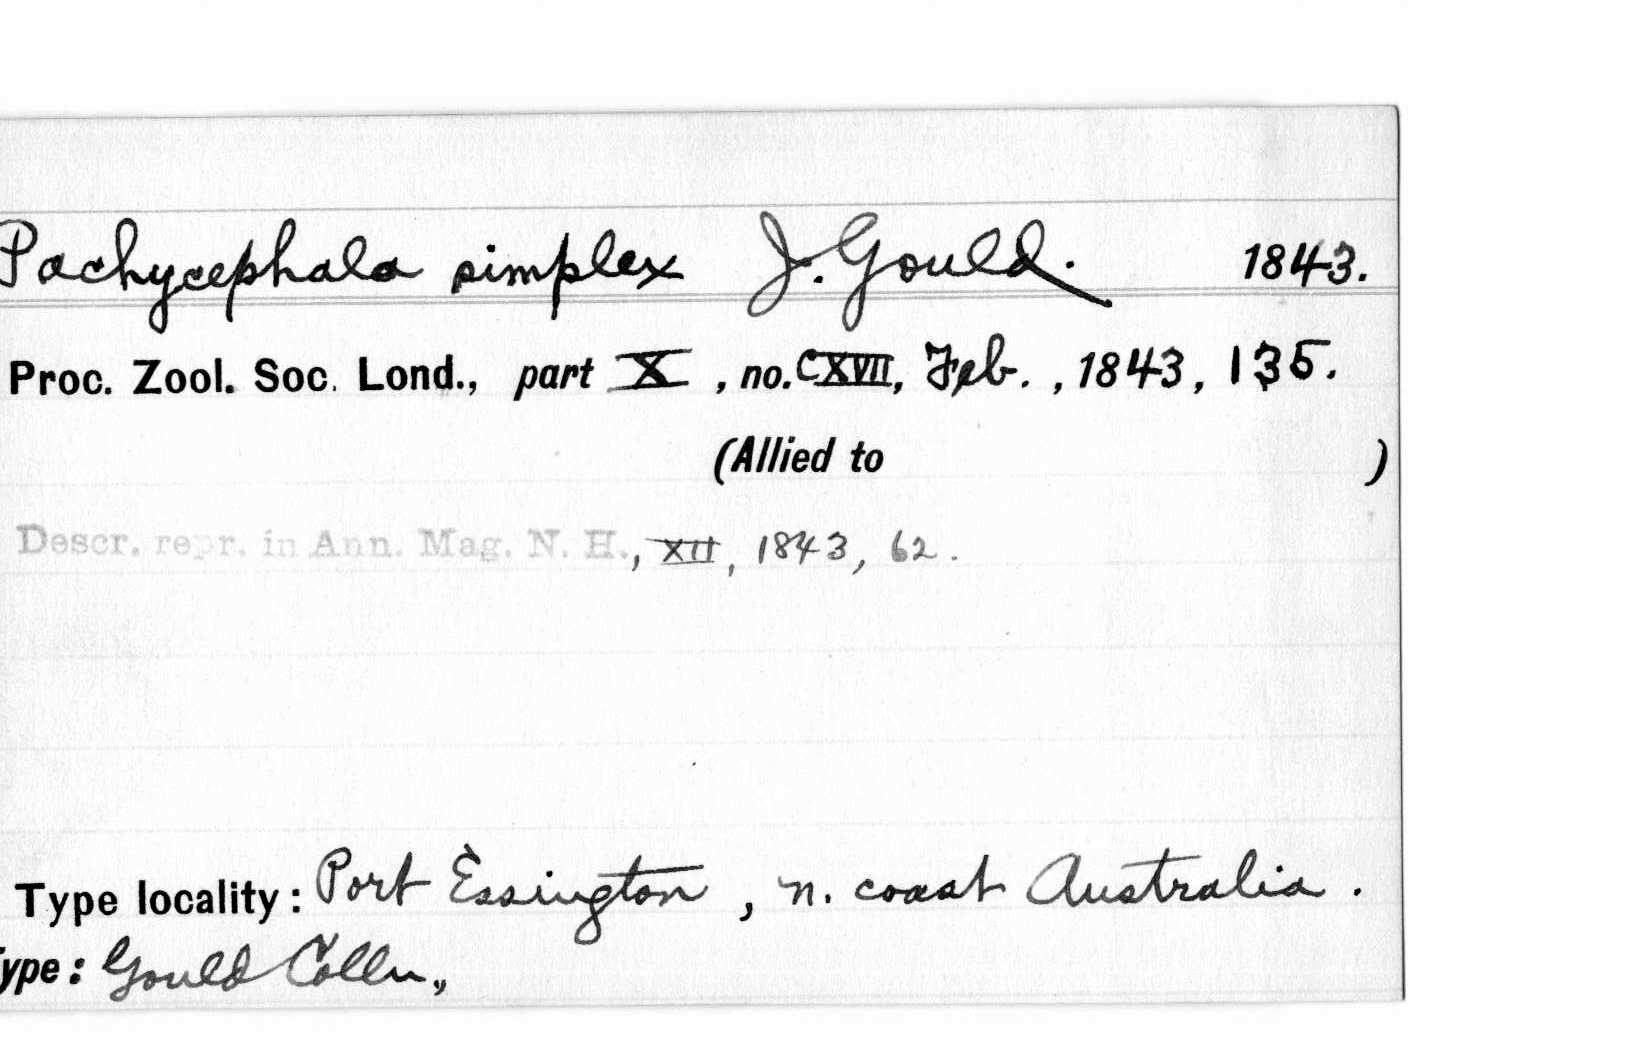 Pachycephala simplex J. Gould. 1843.
Proc. Zool. Soc. Lond., part X, no. CXVII, Feb., 1843, 135.
(Allied to )
Descr. repr. in Ann. Mag. N. H., XII, 1843, 62.
Type locality: Port Essington, n. coast Australia.
Type: Gould Colln.,